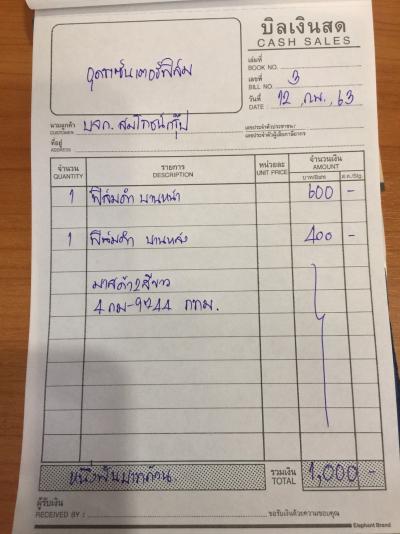 บิลเงินสด
CASH SALES
เล่มที่
BOOK NO.
เลขที่ 3
BILL NO.
วันที่ 12 กพ. 63
DATE :
นามลูกค้า บจก. สมโภชน์กรุ๊ป
CUSTOMER
เลขประจำตัวประชาชน/
เลขประจำตัวผู้เสียภาษีอากร
ที่อยู่
ADDRESS
จำนวน รายการ หน่วยละ จำนวนเงิน
QUANTITY DESCRIPTION UNIT PRICE AMOUNT
บาท/Baht ส.ต./Stg.
1 ฟิล์มดำ บานหน้า 600 -
1 ฟิล์มดำ บานหลัง 400 -
มาสด้า2สีขาว
4 กม-9244 กทม.
หนึ่งพันบาทถ้วน รวมเงิน 1,000 -
TOTAL
ผู้รับเงิน
RECEIVED BY :
ขอรับเงินด้วยความขอบคุณ
Elephant Brand